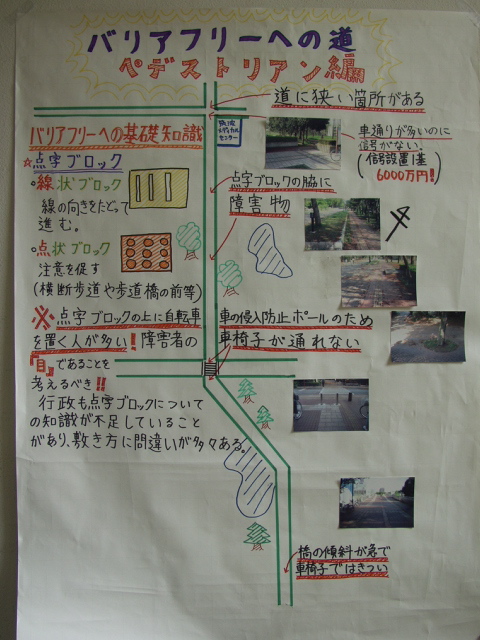 バリアフリーへの道
ペデストリアン編
道に狭い箇所がある
バリアフリーへの基礎知識
筑波
メディカル
センター
車通りが多いのに
信号がない。
(信号設置1基
6000万円!)
☆点字ブロック
線状ブロック
線の向きをたどって
進む。
点字ブロックの脇に
障害物
点状ブロック
注意を促す
(横断歩道や歩道橋の前等)
※点字ブロックの上に自転車
を置く人が多い!障害者の
『目』であることを
考えるべき!!
行政も点字ブロックについて
の知識が不足していること
があり、敷き方に間違いが多々ある。
車の侵入防止ポールのため
車椅子が通れない
橋の傾斜が急で
車椅子ではきつい